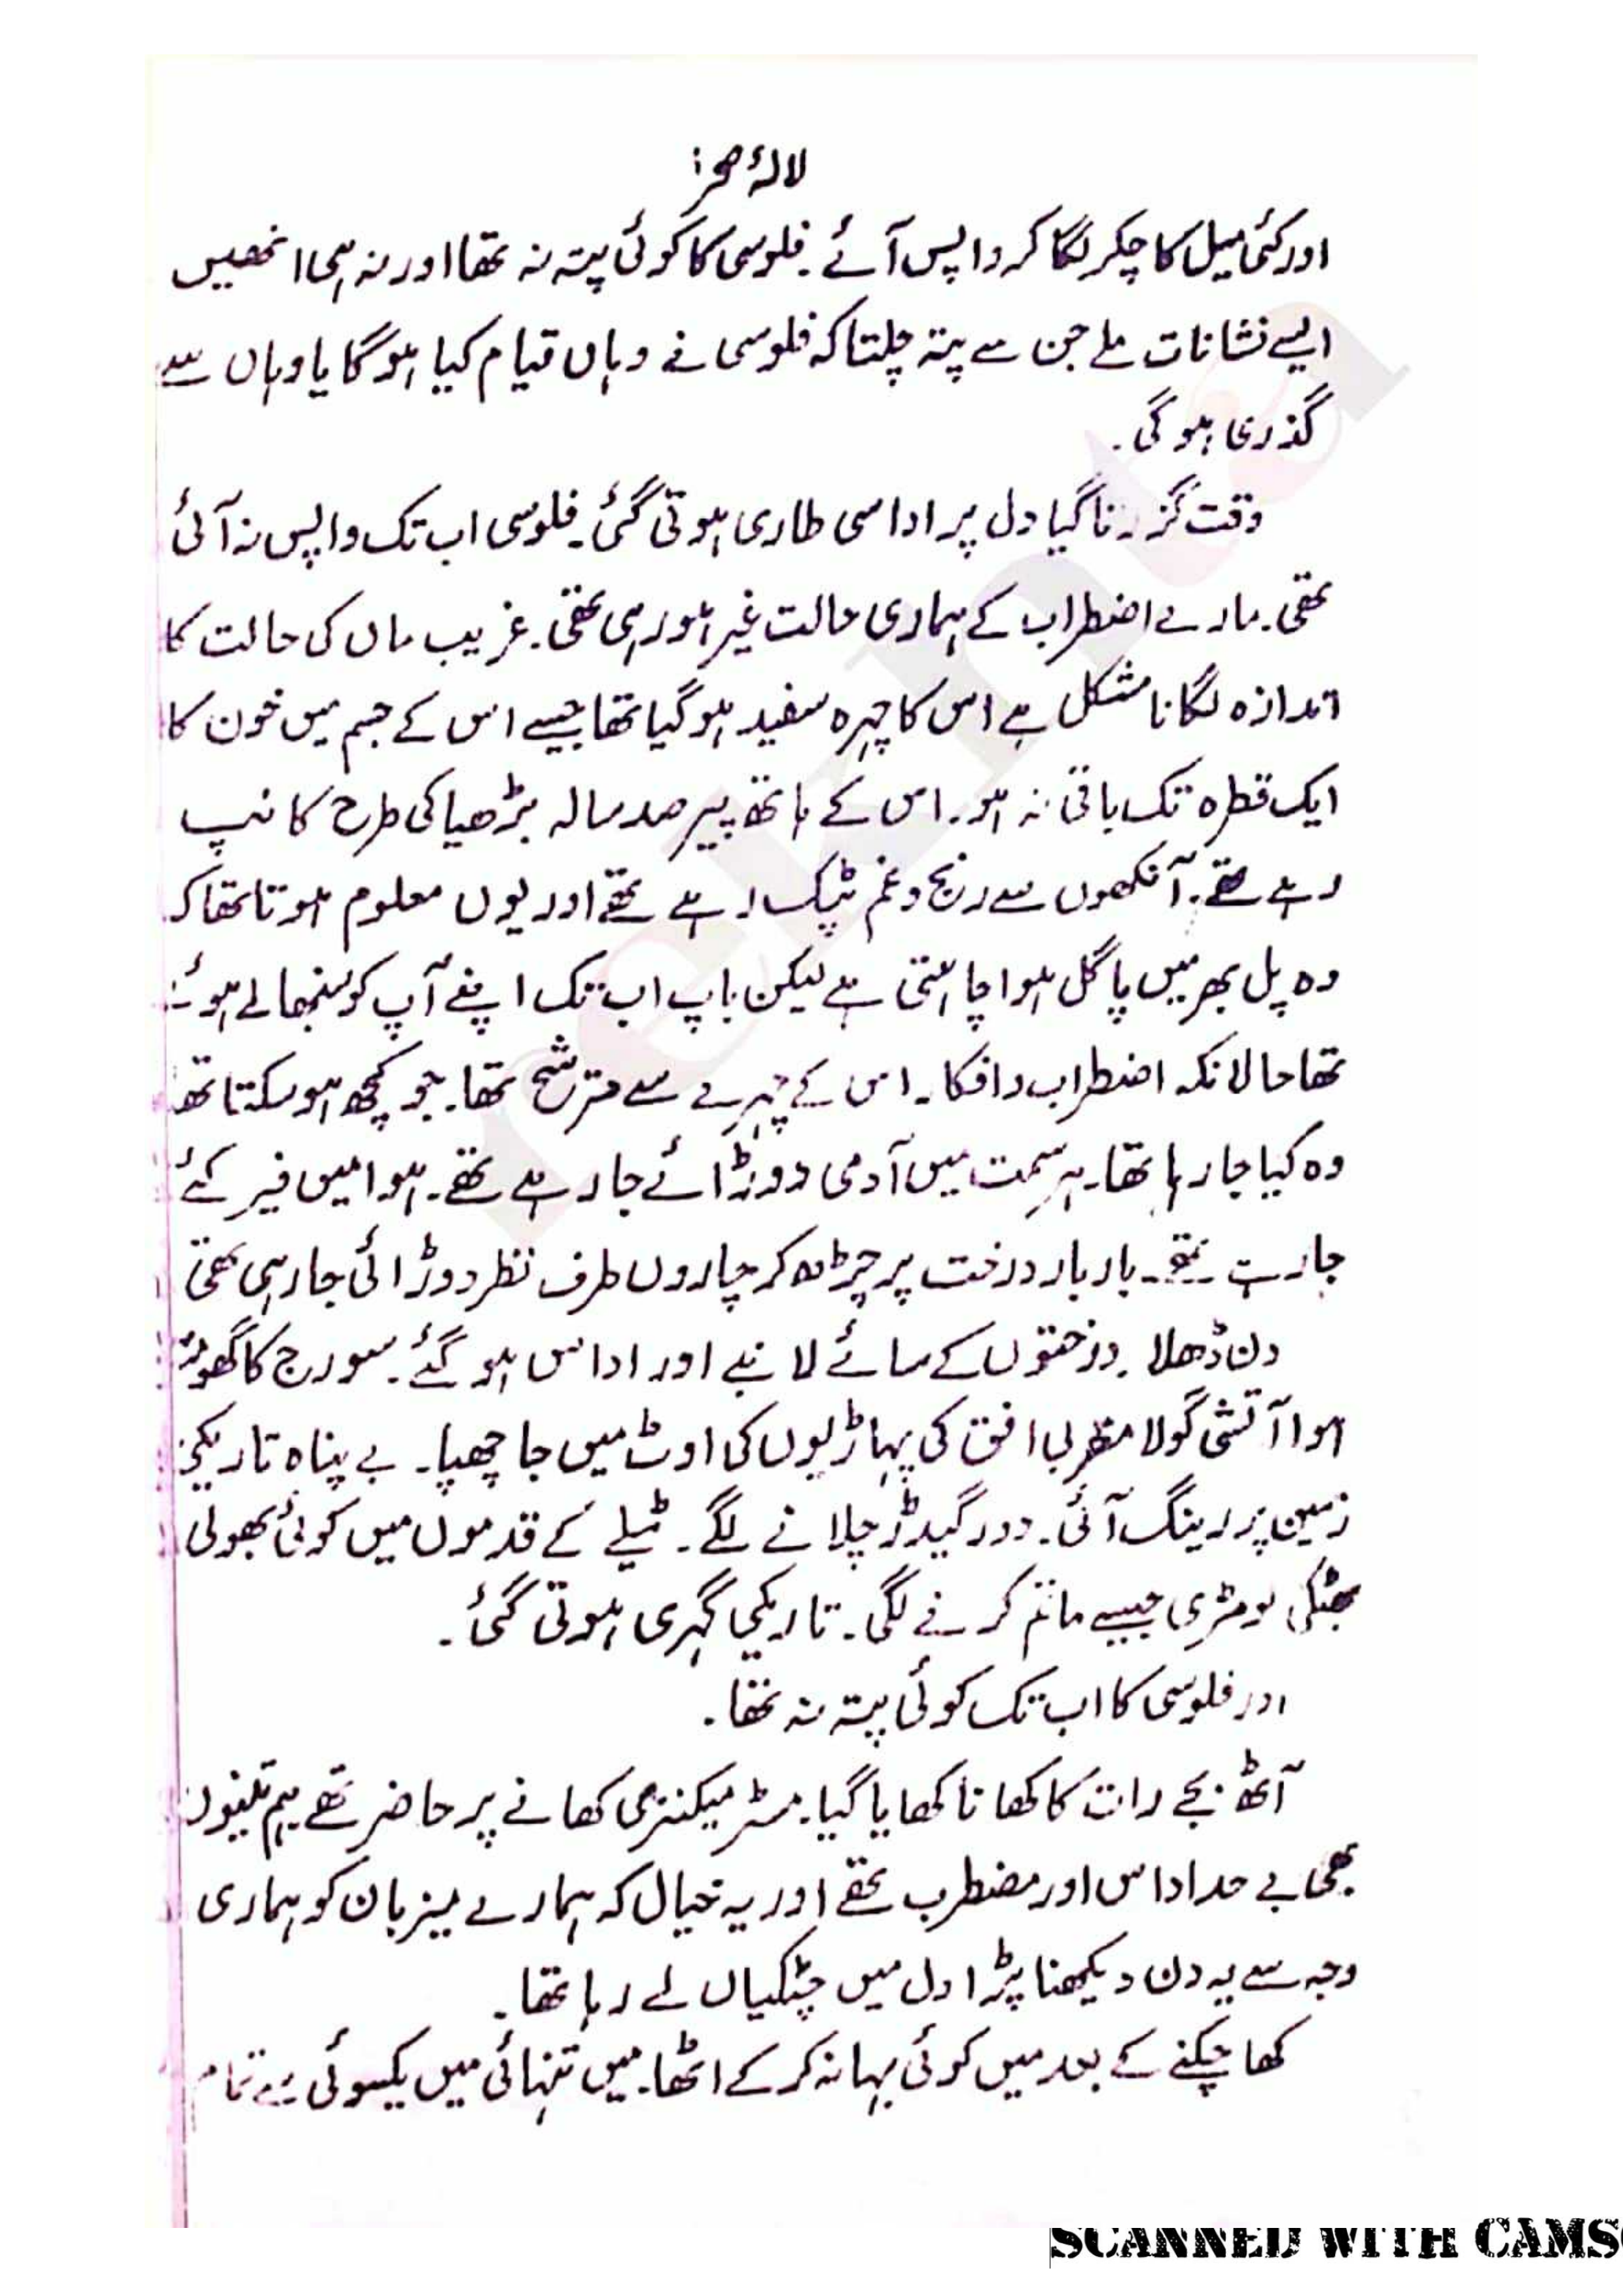 لالۂ صحرا
اور کئی میل کا چکر لگا کر واپس آئے ۔ فلوسی کا کوئی پتہ نہ تھا اور نہ ہی انھیں
ایسے نشانات ملے جن سے پتہ چلتا کہ فلوسی نے وہاں قیام کیا ہوگا یا وہاں سے
گذری ہوگی ۔
وقت گزرتا گیا دل پر اداسی طاری ہوتی گئی ۔ فلوسی اب تک واپس نہ آئی
تھی ۔ مارے اضطراب کے ہماری حالت غیر ہو رہی تھی ۔ غریب ماں کی حالت کا
اندازہ لگانا مشکل ہے اس کا چہرہ سفید ہو گیا تھا جیسے اس کے جسم میں خون کا
ایک قطرہ تک باقی نہ ہو ۔ اس کے ہاتھ پیر صد سالہ بڑھیا کی طرح کانپ
رہے تھے ۔ آنکھوں سے رنج و غم ٹپک رہے تھے اور یوں معلوم ہوتا تھا کہ
وہ پل بھر میں پاگل ہوا چاہتی ہے لیکن باپ اب تک اپنے آپ کو سنبھالے ہوئے
تھا حالانکہ اضطراب و افکا ۔ اس کے چہرے سے مترشح تھا ۔ جو کچھ ہو سکتا تھا
وہ کیا جا رہا تھا ۔ ہر سمت میں آدمی دوڑائے جا رہے تھے ۔ ہوا میں فیر کئے
جا رہے تھے ۔ بار بار درخت پر چڑھ کر چاروں طرف نظر دوڑائی جا رہی تھی
دن ڈھلا ۔ درختوں کے سائے لانبے اور اداس ہو گئے ۔ سورج کا گھومتا
ہوا آتشی گولا مغربی افق کی پہاڑیوں کی اوٹ میں جا چھپا ۔ بے پناہ تاریکی
زمین پر رینگ آئی ۔ دور گیدڑ چلانے لگے ۔ ٹیلے کے قدموں میں کوئی بھولی
بھٹکی لومڑی جیسے ماتم کرنے لگی ۔ تاریکی گہری ہوتی گئی ۔
اور فلوسی کا اب تک کوئی پتہ نہ تھا ۔
آٹھ بجے رات کا کھانا کھایا گیا ۔ مسٹر میکنزی کھانے پر حاضر تھے ہم تینوں
بھی بے حد اداس اور مضطرب تھے اور یہ خیال کہ ہمارے میزبان کو ہماری
وجہ سے یہ دن دیکھنا پڑا دل میں چٹکیاں لے رہا تھا ۔
کھا چکنے کے بعد میں کوئی بہانہ کر کے اٹھا ۔ میں تنہائی میں یکسوئی سے تمام
rekhta
SCANNED WITH CAMS